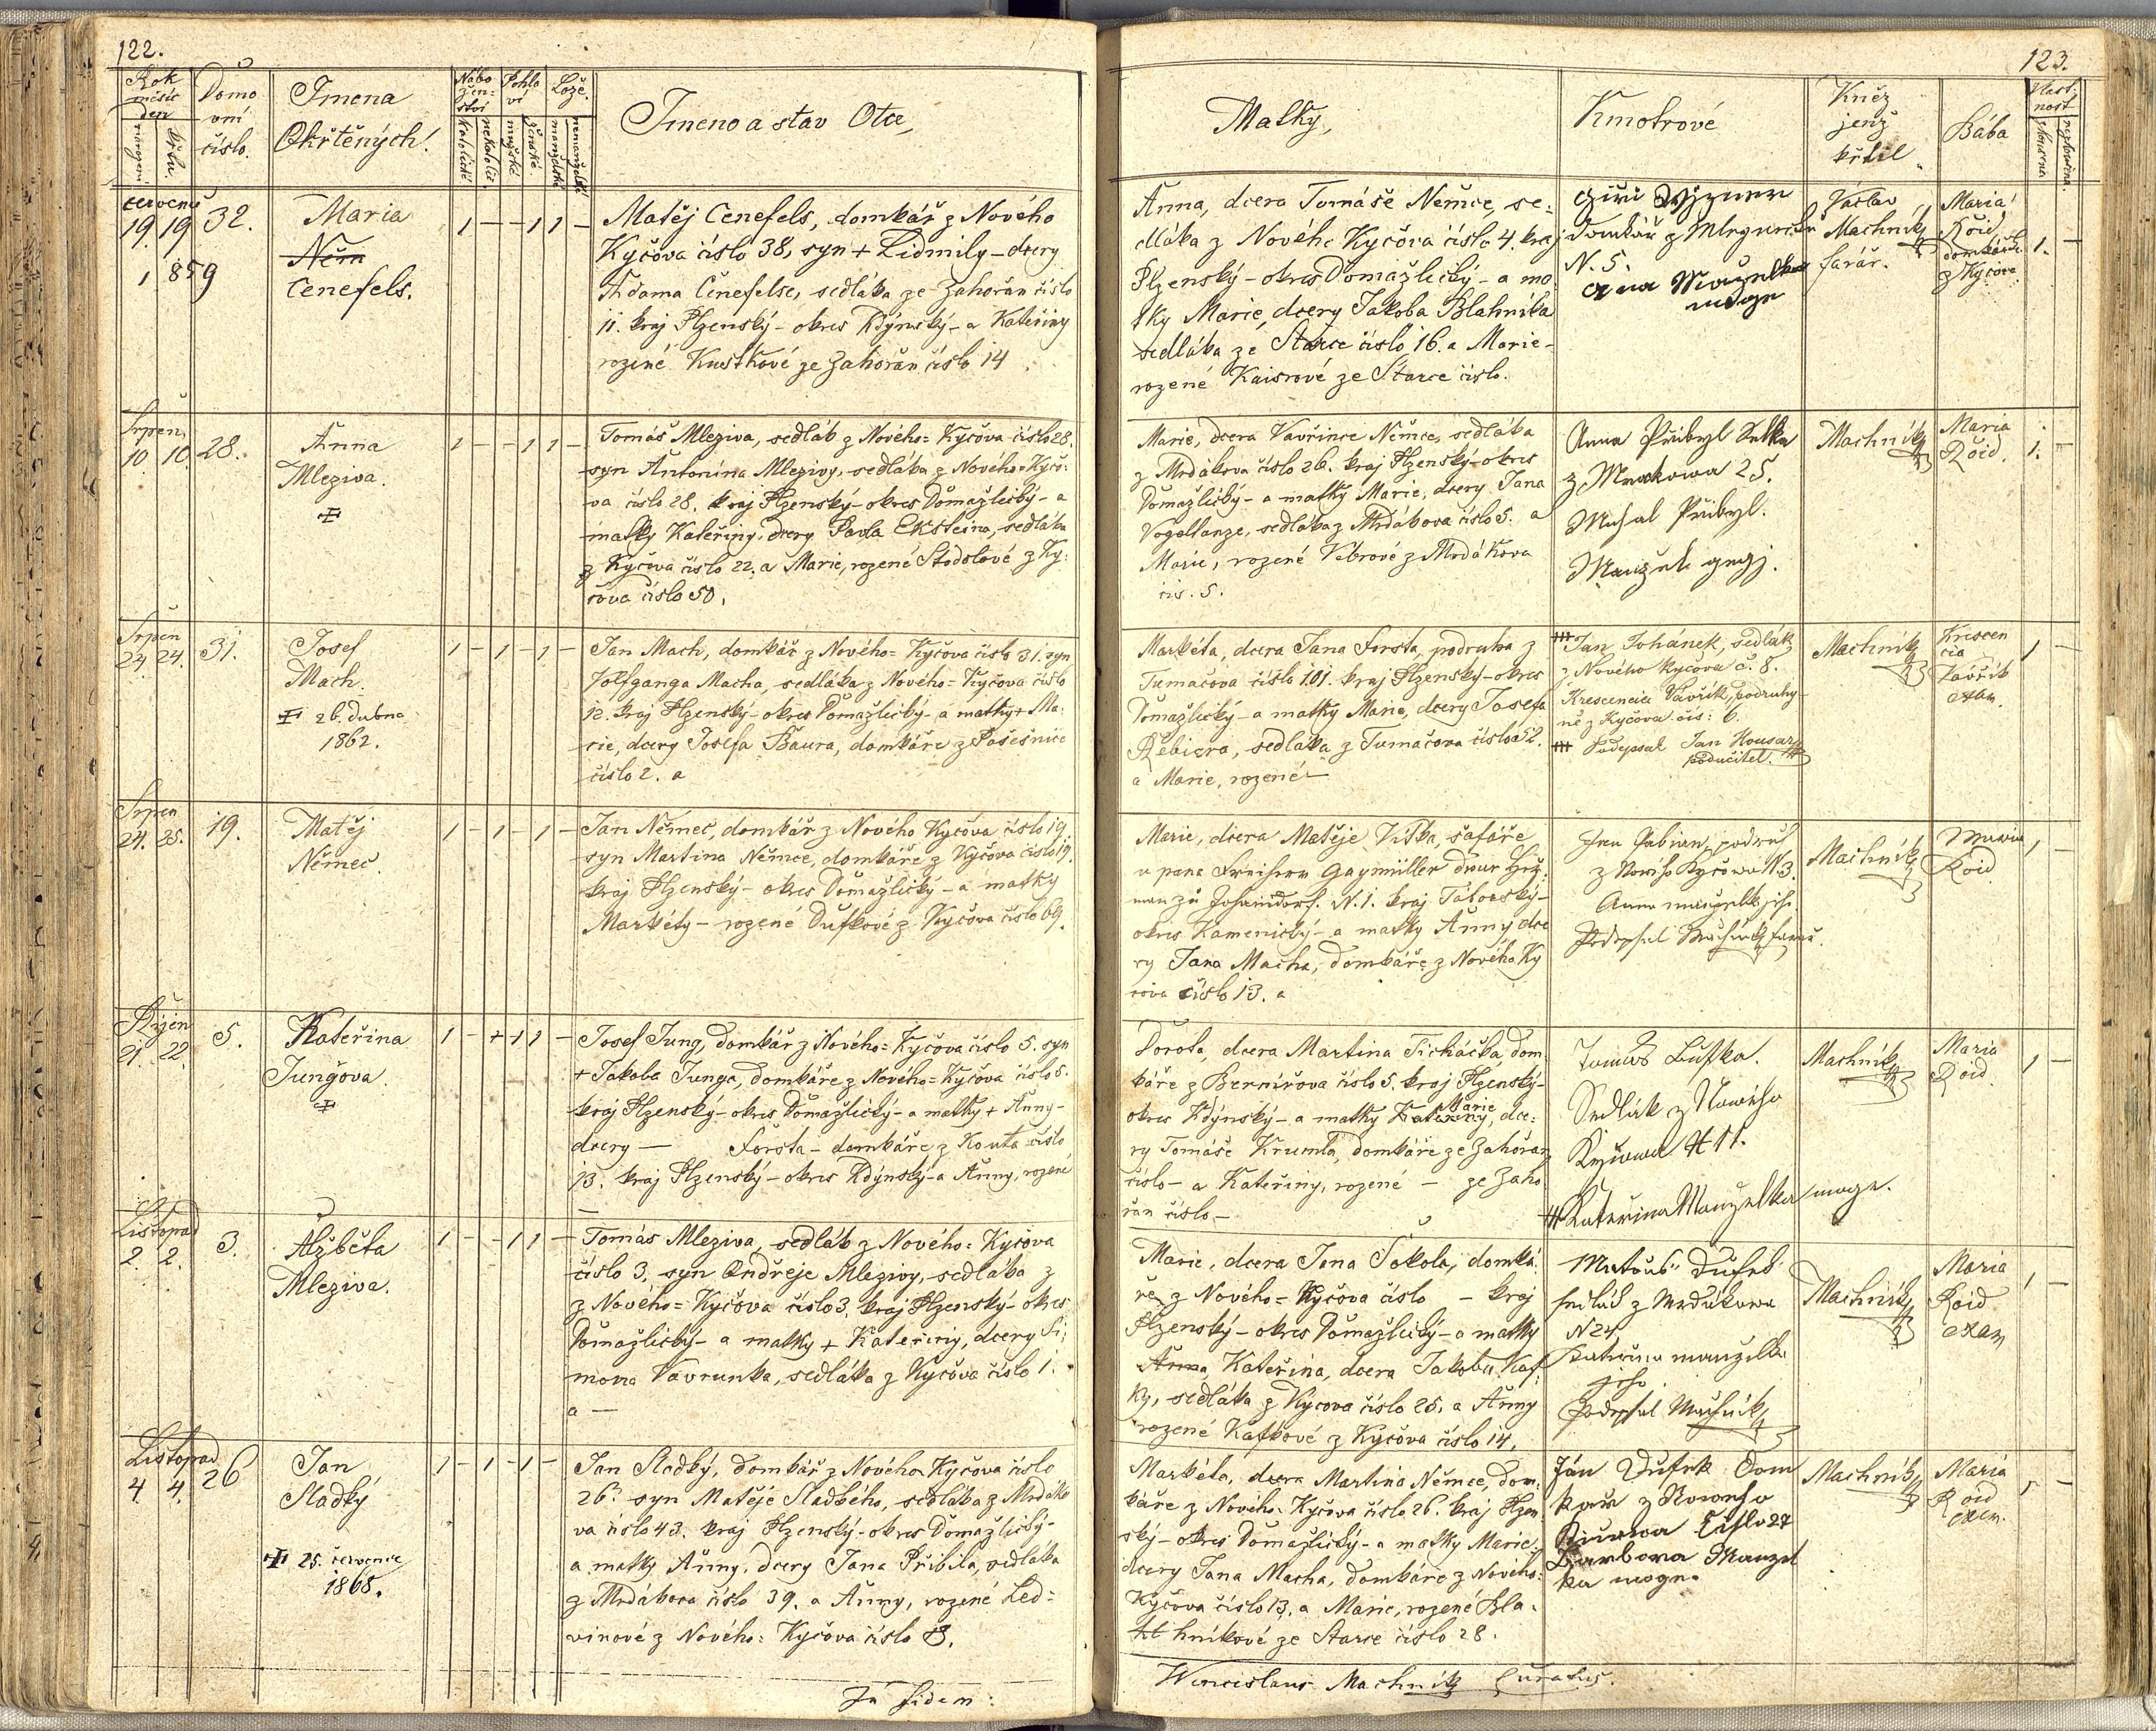 122.
Rok
měsíc
den
narození
křtu.
Domo
vní
číslo.
Jmena
Okřtěných.
Nábo
žen=
ství
katolické
nekatolic.
Pohla
ví
mužské
ženské.
Lože.
manželské
nemanželské
Jmeno a stav Otce,
červenec
19. 19
1859
32.
Maria
Něm
Cenefels.
1 — — 1 1 —
Matěj Cenefels, domkář z Nového
Kyčova číslo 38, syn + Lidmily – dcery
Adama Cenefelse, sedláka ze Zahořan číslo
11. kraj Plzenský – okres Kdýnský – a Kateřiny
rozené Kustkové ze Zahořan číslo 14
Srpen
10. 10.
28.
Anna
Mleziva.
1 — — 1 1 —
Tomáš Mleziva, sedlák z Nového= Kyčova číslo 28.
syn Antonína Mlezivy, sedláka z Nového= Kyčo:
va číslo 28. kraj Plzenský – okres Domažlický – a
matky Kateřiny, dcery Pavla Eksteina, sedláka
z Kyčova číslo 22. a Marie, rozené Stodolové z Ky:
čova číslo 50.
Srpen
24. 24.
31.
Josef
Mach.
26. dubna
1862.
1 — 1 — 1 —
Jan Mach, domkář z Nového= Kyčova číslo 31. syn
Wolfganga Macha, sedláka z Nového= Kyčova číslo
12. kraj Plzenský – okres Domažlický – a matky + Ma:
rie, dcery Josefa Baura, domkáře z Pasešnice
číslo 2. a
Srpen
24. 25.
19.
Matěj
Němec.
1 — 1 — 1 —
Jan Němec, domkář z Nového Kyčova číslo 19.
syn Martina Němce, domkáře z Kyčova číslo 19.
kraj Plzenský – okres Domažlický – a matky
Markéty – rozené Dufkové z Kyčova číslo 69.
Říjen
21. 22.
5.
Kateřina
Jungova.
1 — + 1 1 —
Josef Jung, domkář z Nového= Kyčova číslo 5. syn
+ Jakoba Junga, domkáře z Nového= Kyčova číslo 5.
kraj Plzenský – okres Domažlický – a matky + Anny –
dcery — Forsta – domkáře z Kouta číslo
13. kraj Plzenský – okres Kdýnský – a Anny, rozené
—
Listopad
2. 2.
3.
Alžběta
Mleziva.
1 — — 1 1 —
Tomás Mleziva, sedlák z Nového= Kyčova
číslo 3, syn Ondřeje Mlezivy, sedláka z
z Nového= Kyčova číslo 3. kraj Plzenský – okres
Domažlický – a matky + Kateřiny, dcery Si:
mona Vavrunka, sedláka z Kyčova číslo 1.
a —
Listopad
4. 4.
26
Jan
Sladký
25. července
1868.
1 — 1 — 1 —
Jan Sladký, domkář z Nového Kyčova číslo
26. syn Matěje Sladkého, sedláka z Mrdáko
va číslo 43. kraj Plzenský – okres Domažlický –
a matky Anny, dcery Jana Přibila, sedláka
z Mrdákova číslo 39. a Anny, rozené Led=
vinové z Nového= Kyčova číslo 8.
In fidem:
123.
Matky,
Kmotrové
Kněz
jenž
křtil
Bába
Vlast-
nost
zkoušená
nezkoušená
Anna, dcera Tomáše Němce, se:
dláka z Nového Kyčova číslo 4. kraj
Plzenský – okres Domažlický – a ma
tky Marie, dcery Jakoba Blahníka
sedláka ze Starce číslo 16. a Marie –
rozené Kaisrové ze Starce číslo.
Domkář z
N. 5.
Manželka
moge
Václav
Machník
farář.
Maria
Roid
domkářka
z Kyčova
1. —
Marie, dcera Vavřince Němce, sedláka
z Mrdákova číslo 26. kraj Plzenský – okres
Domažlický – a matky Marie, dcery Jana
Vogeltanze, sedláka z Mrdákova číslo 5. a
Marie, rozené Vébrové z Mrdákova
čís. 5.
Anna Přibyl Selka
z Mrdakowa 25.
Michal Přibyl.
Manžel gegj.
Machník
Maria
Roid.
1. —
Markéta, dcera Jana Forsta, podruha z
Tumačova číslo 101. kraj Plzenský – okres
Domažlický – a matky Marie, dcery Josefa
Řebicra, sedláka z Tumačova číslo 52.
a Marie, rozené —
+++ Jan Johánek, sedlák
z Nového Kyčova č. 8.
Krescencia Vavřík, podruhy-
ně z Kyčova čís: 6.
+++ Podepsal Jan Housar
podučitel.
Machník
Krescen
cia
Vavřík
exam.
1 —
Marie, dcera Matěje Víška, šafáře
u pana Freiherrn Gaymüller dvur
zu Johanndorf. N. 1. kraj Táborský –
okres Kamenický – a matky Anny dce
ry Jana Macha, domkáře z Nového Ky
čova číslo 13. a
Jan Fabian, podruh
z Nového Kyčowa N. 3.
Anna manželka jeho.
Podepsal Machník farář.
Machník
Maria
Roid
1 —
Dorota, dcera Martina Ticháčka, dom
káře z Berničova číslo 5. kraj Plzenský –
Marie
okres Kdýnský – a matky Kateřiny, dce:
ry Tomáše Krumla, domkáře ze Zahořan
číslo – a Kateřiny, rozené — ze Zaho
řan číslo –
Tomáš Dufka.
Sedlák z Nowého
Kyčowa # 11.
Kateřina Manželka moge.
Machník
Maria
Roid
1 —
Marie, dcera Jana Sokola, domká
ře z Nového= Kyčova číslo – kraj
Plzenský – okres Domažlický – a matky
Anna, Kateřina, dcera Jakoba Kaf:
ky, sedláka z Kycova číslo 25. a Anny
rozené Kafkové z Kyčova číslo 14.
Matouš Dufek
sedlák z Mrdákowa
N 24
Kateřina manželka
jeho
Podepsal Machník
Machník
Maria
Roid
exam
1 —
Markéta, dcera Martina Němce, dom:
káře z Nového= Kyčova číslo 26. kraj Plzen
ský – okres Domažlický – a matky Marie,
dcery Jana Macha, domkáře z Nového=
Kyčova číslo 13. a Marie, rozené Bla-
hníkové ze Starce číslo 28.
Ján Dufek Dom
kař z Nowého
Kičowa Číslo 27
Barbora Manžel
ka moge.
Machník
Maria
Roid
exam.
1 —
Wenceslaus Machník Curatus.